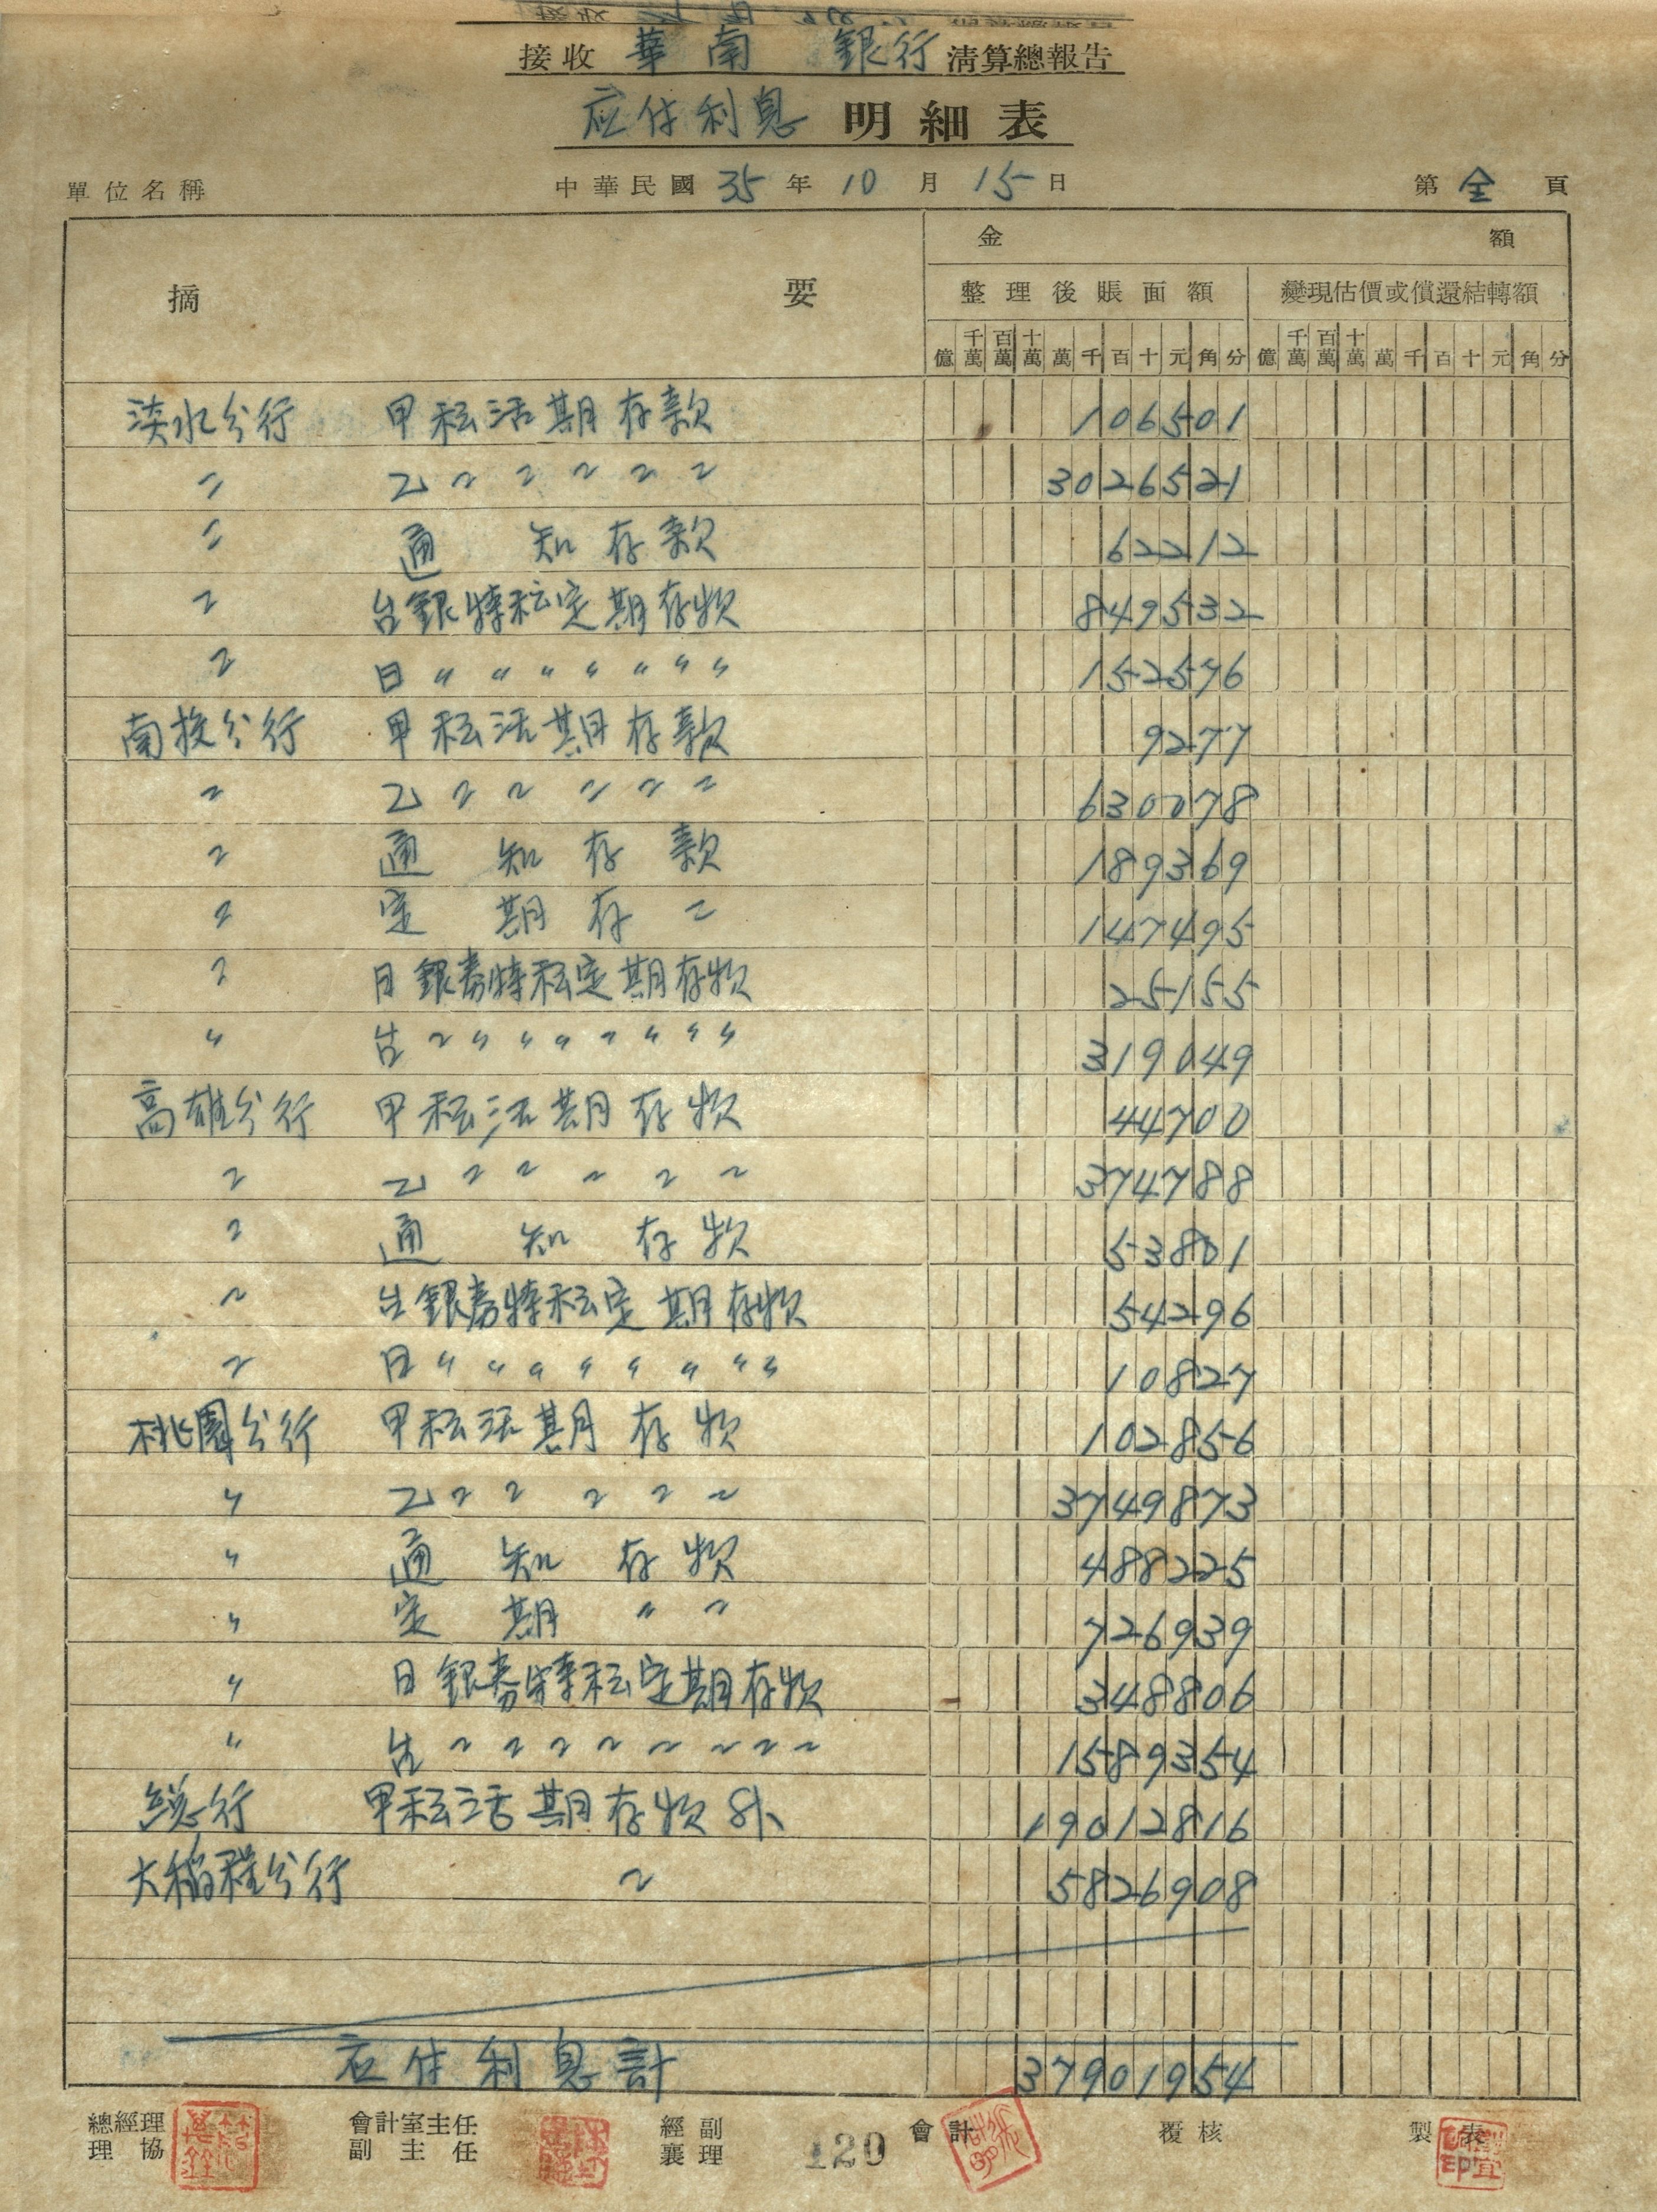 接收 華南 銀行 清算總報告
应付利息 明細表
單位名稱 中華民國 35 年 10 月 15 日 第 全 頁
摘 要 金 額
整理後賬面額 變現估價或償還結轉額
億 千萬 百萬 十萬 萬 千 百 十 元 角 分 億 千萬 百萬 十萬 萬 千 百 十 元 角 分
淡水分行 甲种活期存款 106501
〃 乙〃〃〃〃〃 3026521
〃 通知存款 62212
〃 台銀特种定期存款 849532
〃 日〃〃〃〃〃〃〃 152576
南投分行 甲种活期存款 9277
〃 乙〃〃〃〃〃 630078
〃 通知存款 189369
〃 定期存〃 147495
〃 日銀券特种定期存款 25155
〃 台〃〃〃〃〃〃〃〃 319049
高雄分行 甲种活期存款 44700
〃 乙〃〃〃〃〃 374788
〃 通知存款 53801
〃 台銀券特种定期存款 54296
〃 日〃〃〃〃〃〃〃〃 10827
桃園分行 甲种活期存款 102856
〃 乙〃〃〃〃〃 3749873
〃 通知存款 488225
〃 定期〃〃 726939
〃 日銀券特种定期存款 348806
〃 台〃〃〃〃〃〃〃〃 1589354
総行 甲种活期存款外 19012816
大稻埕分行 〃 5826908
应付利息計 37901954
總經理 會計室主任 經副 會計 覆核 製表
理協 副主任 襄理
120